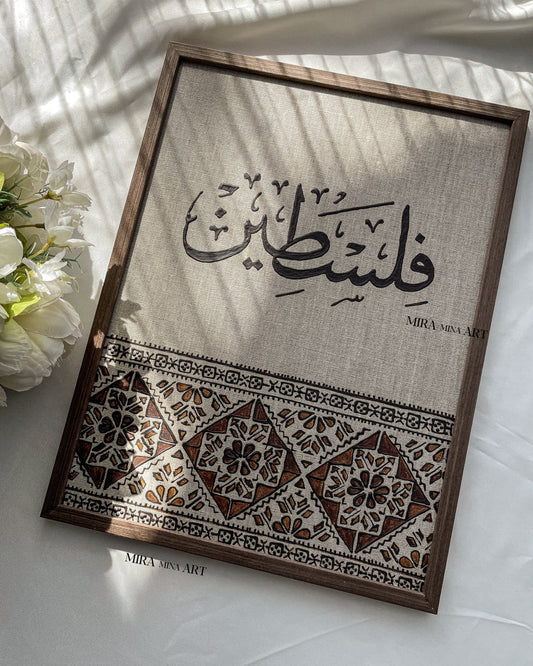 فلسطين
MIRA MINA ART
MIRA MINA ART